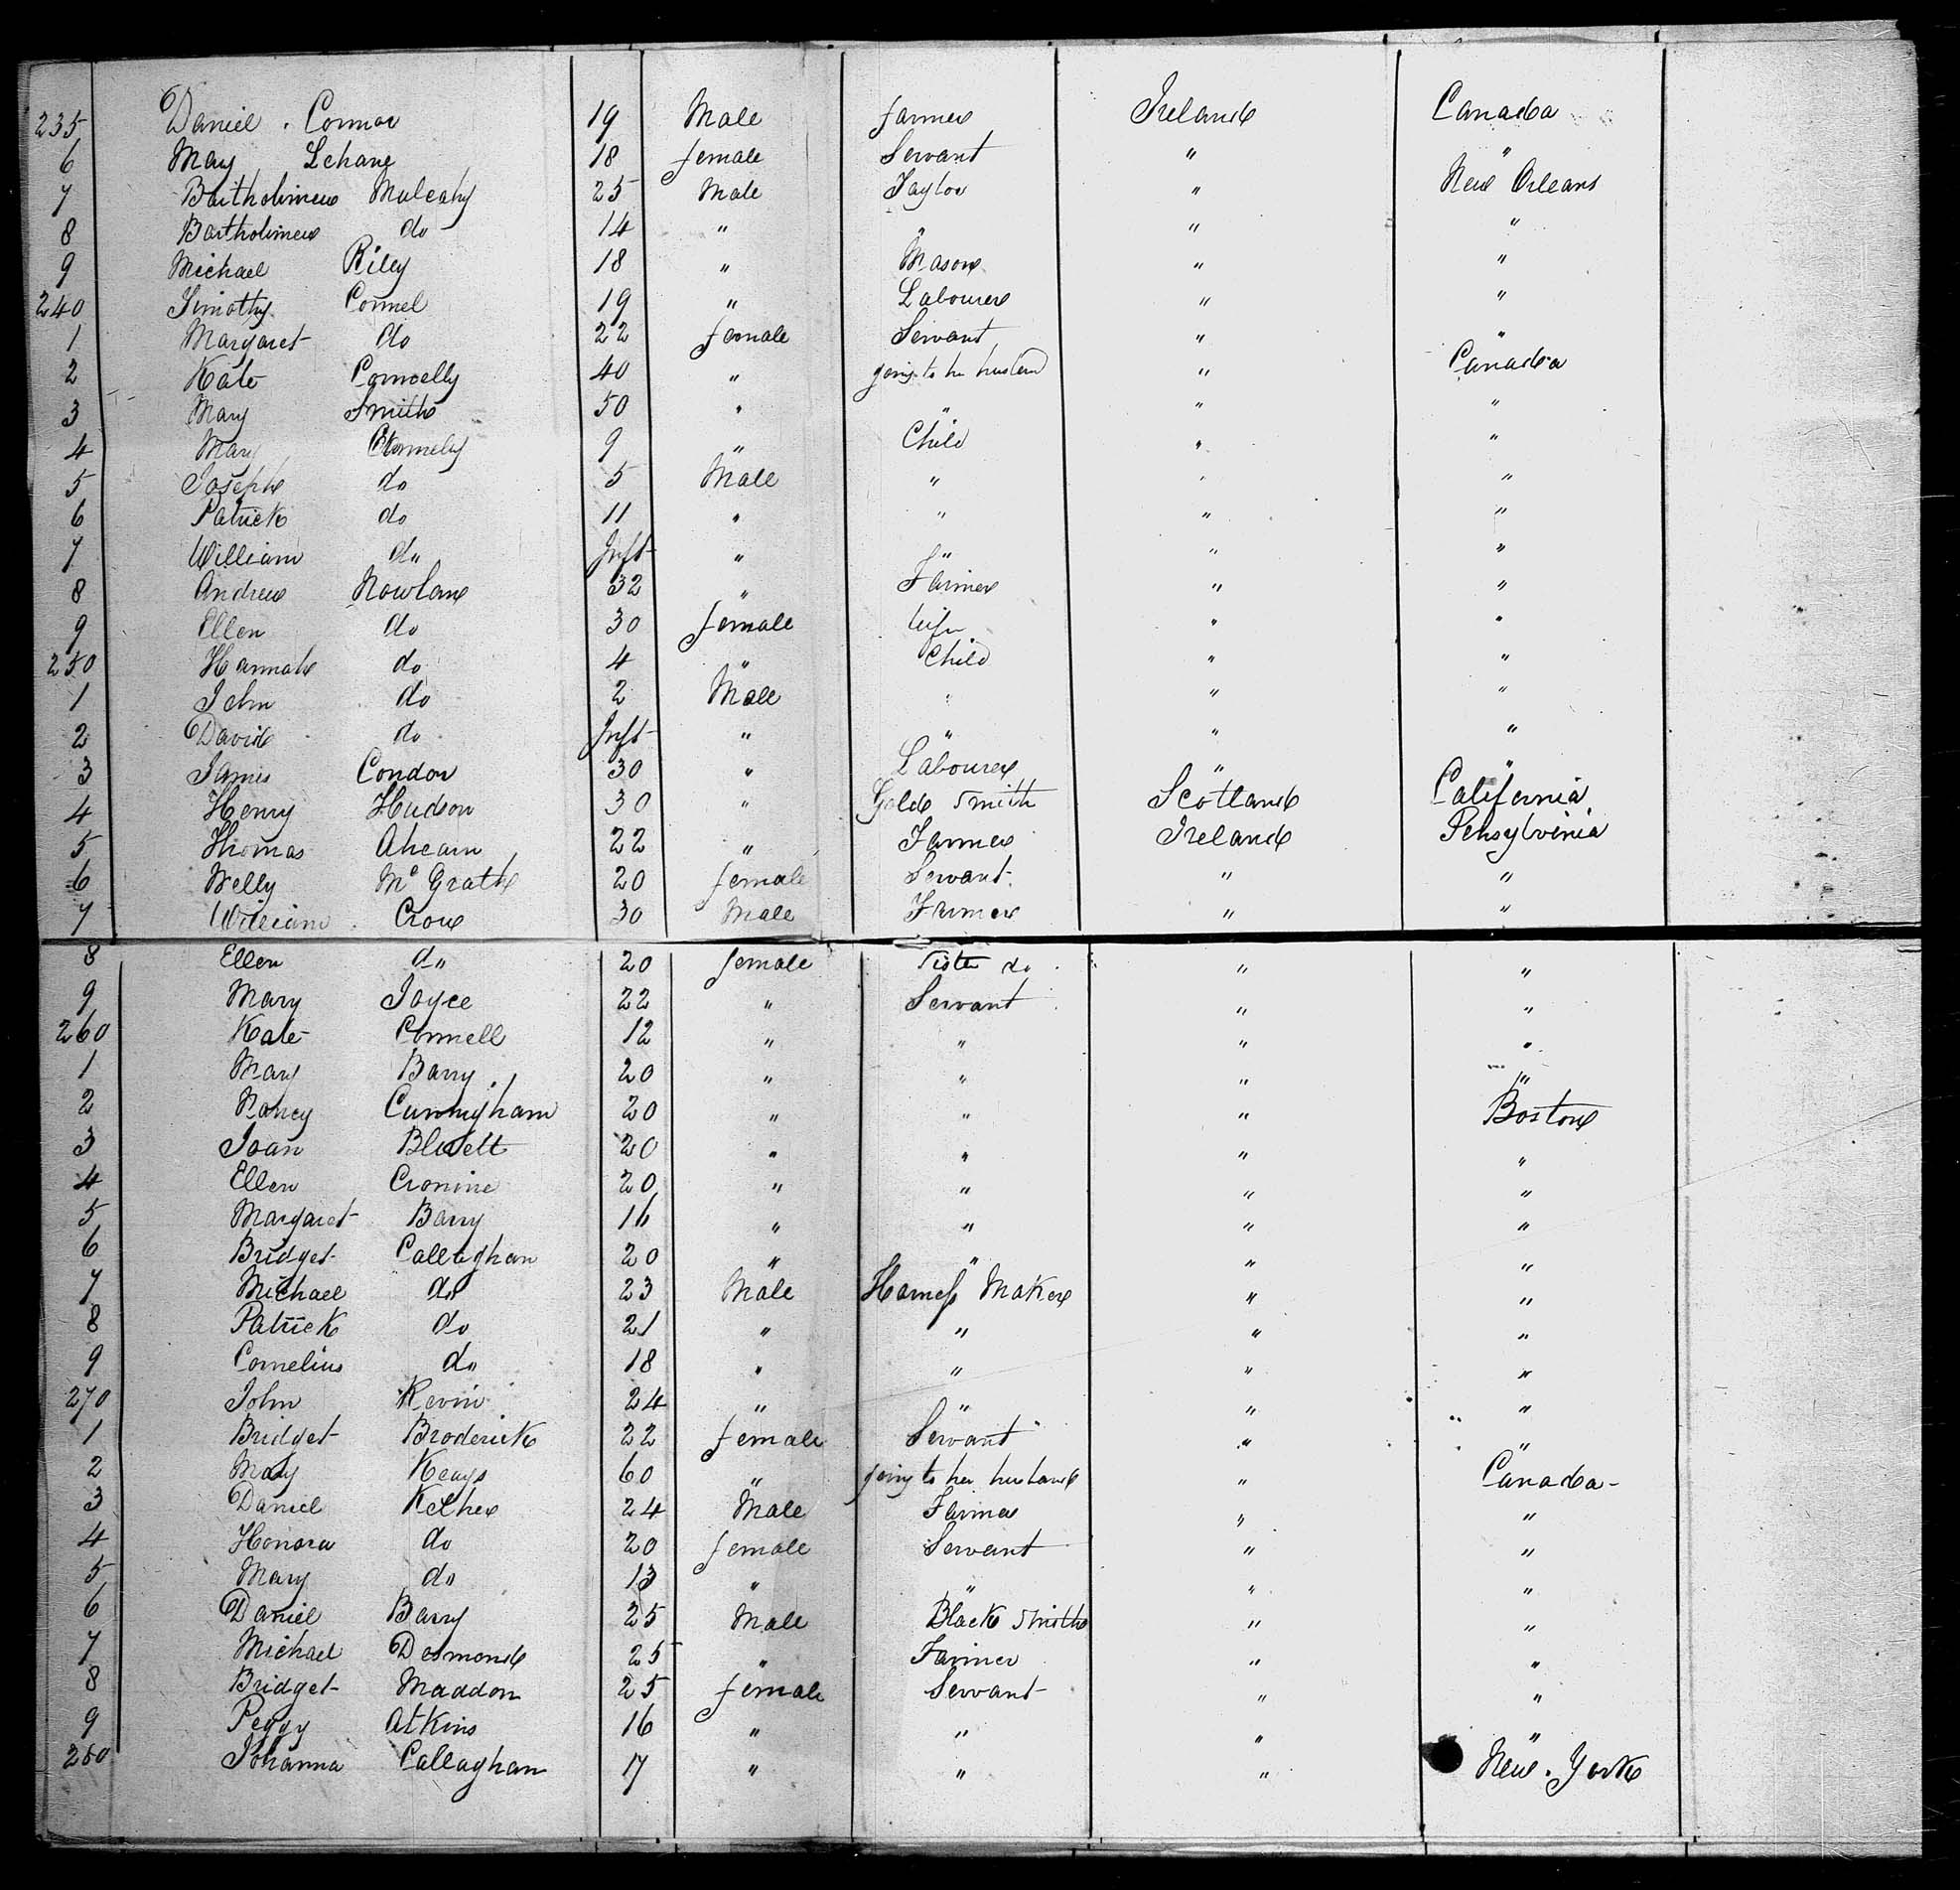 235 Daniel . Connor 19 Male farmer Ireland Canada
6 May Lehane 18 female Servant " "
7 Bartholimew Mulcahy 25 Male Taylor " New Orleans
8 Bartholimew do 14 " " " "
9 Michael Riley 18 " Mason " "
240 Timothy Connel 19 " Labourer " "
1 Margaret do 22 female Servant " "
2 Kate Connelly 40 " going to her husband " Canada
3 Mary Smith 50 " " " "
4 Mary Connely 9 " Child " "
5 Joseph do 5 Male " " "
6 Patrick do 11 " " " "
7 William do Inft " " " "
8 Andrew Nowlan 32 " Farmer " "
9 Ellen do 30 female wife " "
250 Hannah do 4 " Child " "
1 John do 2 Male " " "
2 David do Inft " " " "
3 James Condon 30 " Labourer " "
4 Henry Hudson 30 " Gold Smith Scotland California
5 Thomas Ahearn 22 " Farmer Ireland Pensylvinia
6 Nelly Mc Grath 20 female Servant " "
7 William Crow 30 Male Farmer " "
8 Ellen do 20 female Sister do " "
9 Mary Joyce 22 " Servant " "
260 Kate Connell 12 " " " "
1 Mary Barry 20 " " " "
2 Nancy Cunningham 20 " " " Boston
3 Joan Blewett 20 " " " "
4 Ellen Cronine 20 " " " "
5 Margaret Barry 16 " " " "
6 Bridget Callaghan 20 " " " "
7 Michael do 23 Male Harness Maker " "
8 Patrick do 21 " " " "
9 Cornelius do 18 " " " "
270 John Kevin 24 " " " "
1 Bridget Broderick 22 female Servant " "
2 Mary Keays 60 " going to her husband " Canada
3 Daniel Keleher 24 Male Farmer " "
4 Honora do 20 female Servant " "
5 Mary do 13 " " " "
6 Daniel Barry 25 Male Black Smith " "
7 Michael Desmond 25 " Farmer " "
8 Bridget Maddon 25 female Servant " "
9 Peggy Atkins 16 " " " "
280 Johanna Callaghan 17 " " " New York